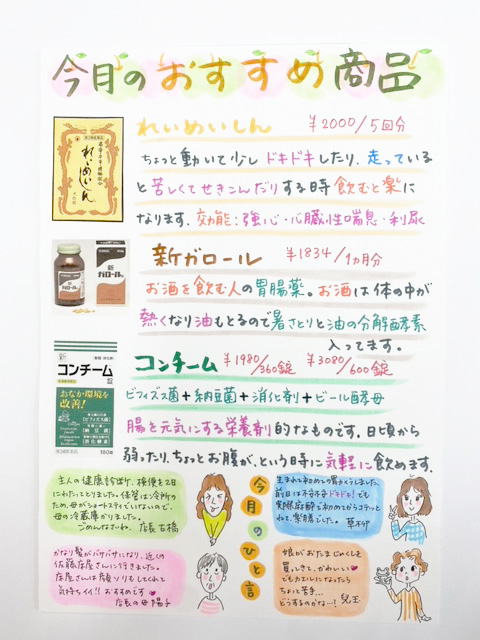 今月のおすすめ商品
れいめいしん ¥2000/5回分
ちょっと動いて少しドキドキしたり、走っている
と苦しくてせきこんだりする時飲むと楽に
なります。効能:強心・心臓性喘息・利尿
れいめいしん
新ガロール ¥1834/1カ月分
お酒を飲む人の胃腸薬。お酒は体の中が
熱くなり油もとるので暑さとりと油の分解酵素
入ってます。
新
ガロール
コンチーム ¥1980/360錠 ¥3080/600錠
ビフィズス菌+納豆菌+消化剤+ビール酵母
腸を元気にする栄養剤的なものです。日頃から
弱ったり、ちょっとお腹が、という時に気軽に飲めます。
新
コンチーム
錠
おなか環境を
改善!
180錠
今月のひと言
主人の健康診断で、検便を2日
にわたってとりました。保管は冷所の
ため、母がショートステイでいないので、
母の冷蔵庫かりました。
ごめんなさいね。 店長 古橋
生まれて初めての胃カメラしました。
前日は不安不安ドキドキ!でも
実際麻酔で初めてがうコテッと
ねて、楽勝でした。 草卯
かなり髪がバサバサになり、近くの
佐藤床屋さんに行きました。
床屋さんは顔ソリもしてくれて
気持ちイイ!!おすすめです
店長の母 陽子
娘がおたまじゃくしを
買ってきて、かわいい
でもカエルになったら
ちょっと苦手...
どうするのかな…! 児玉